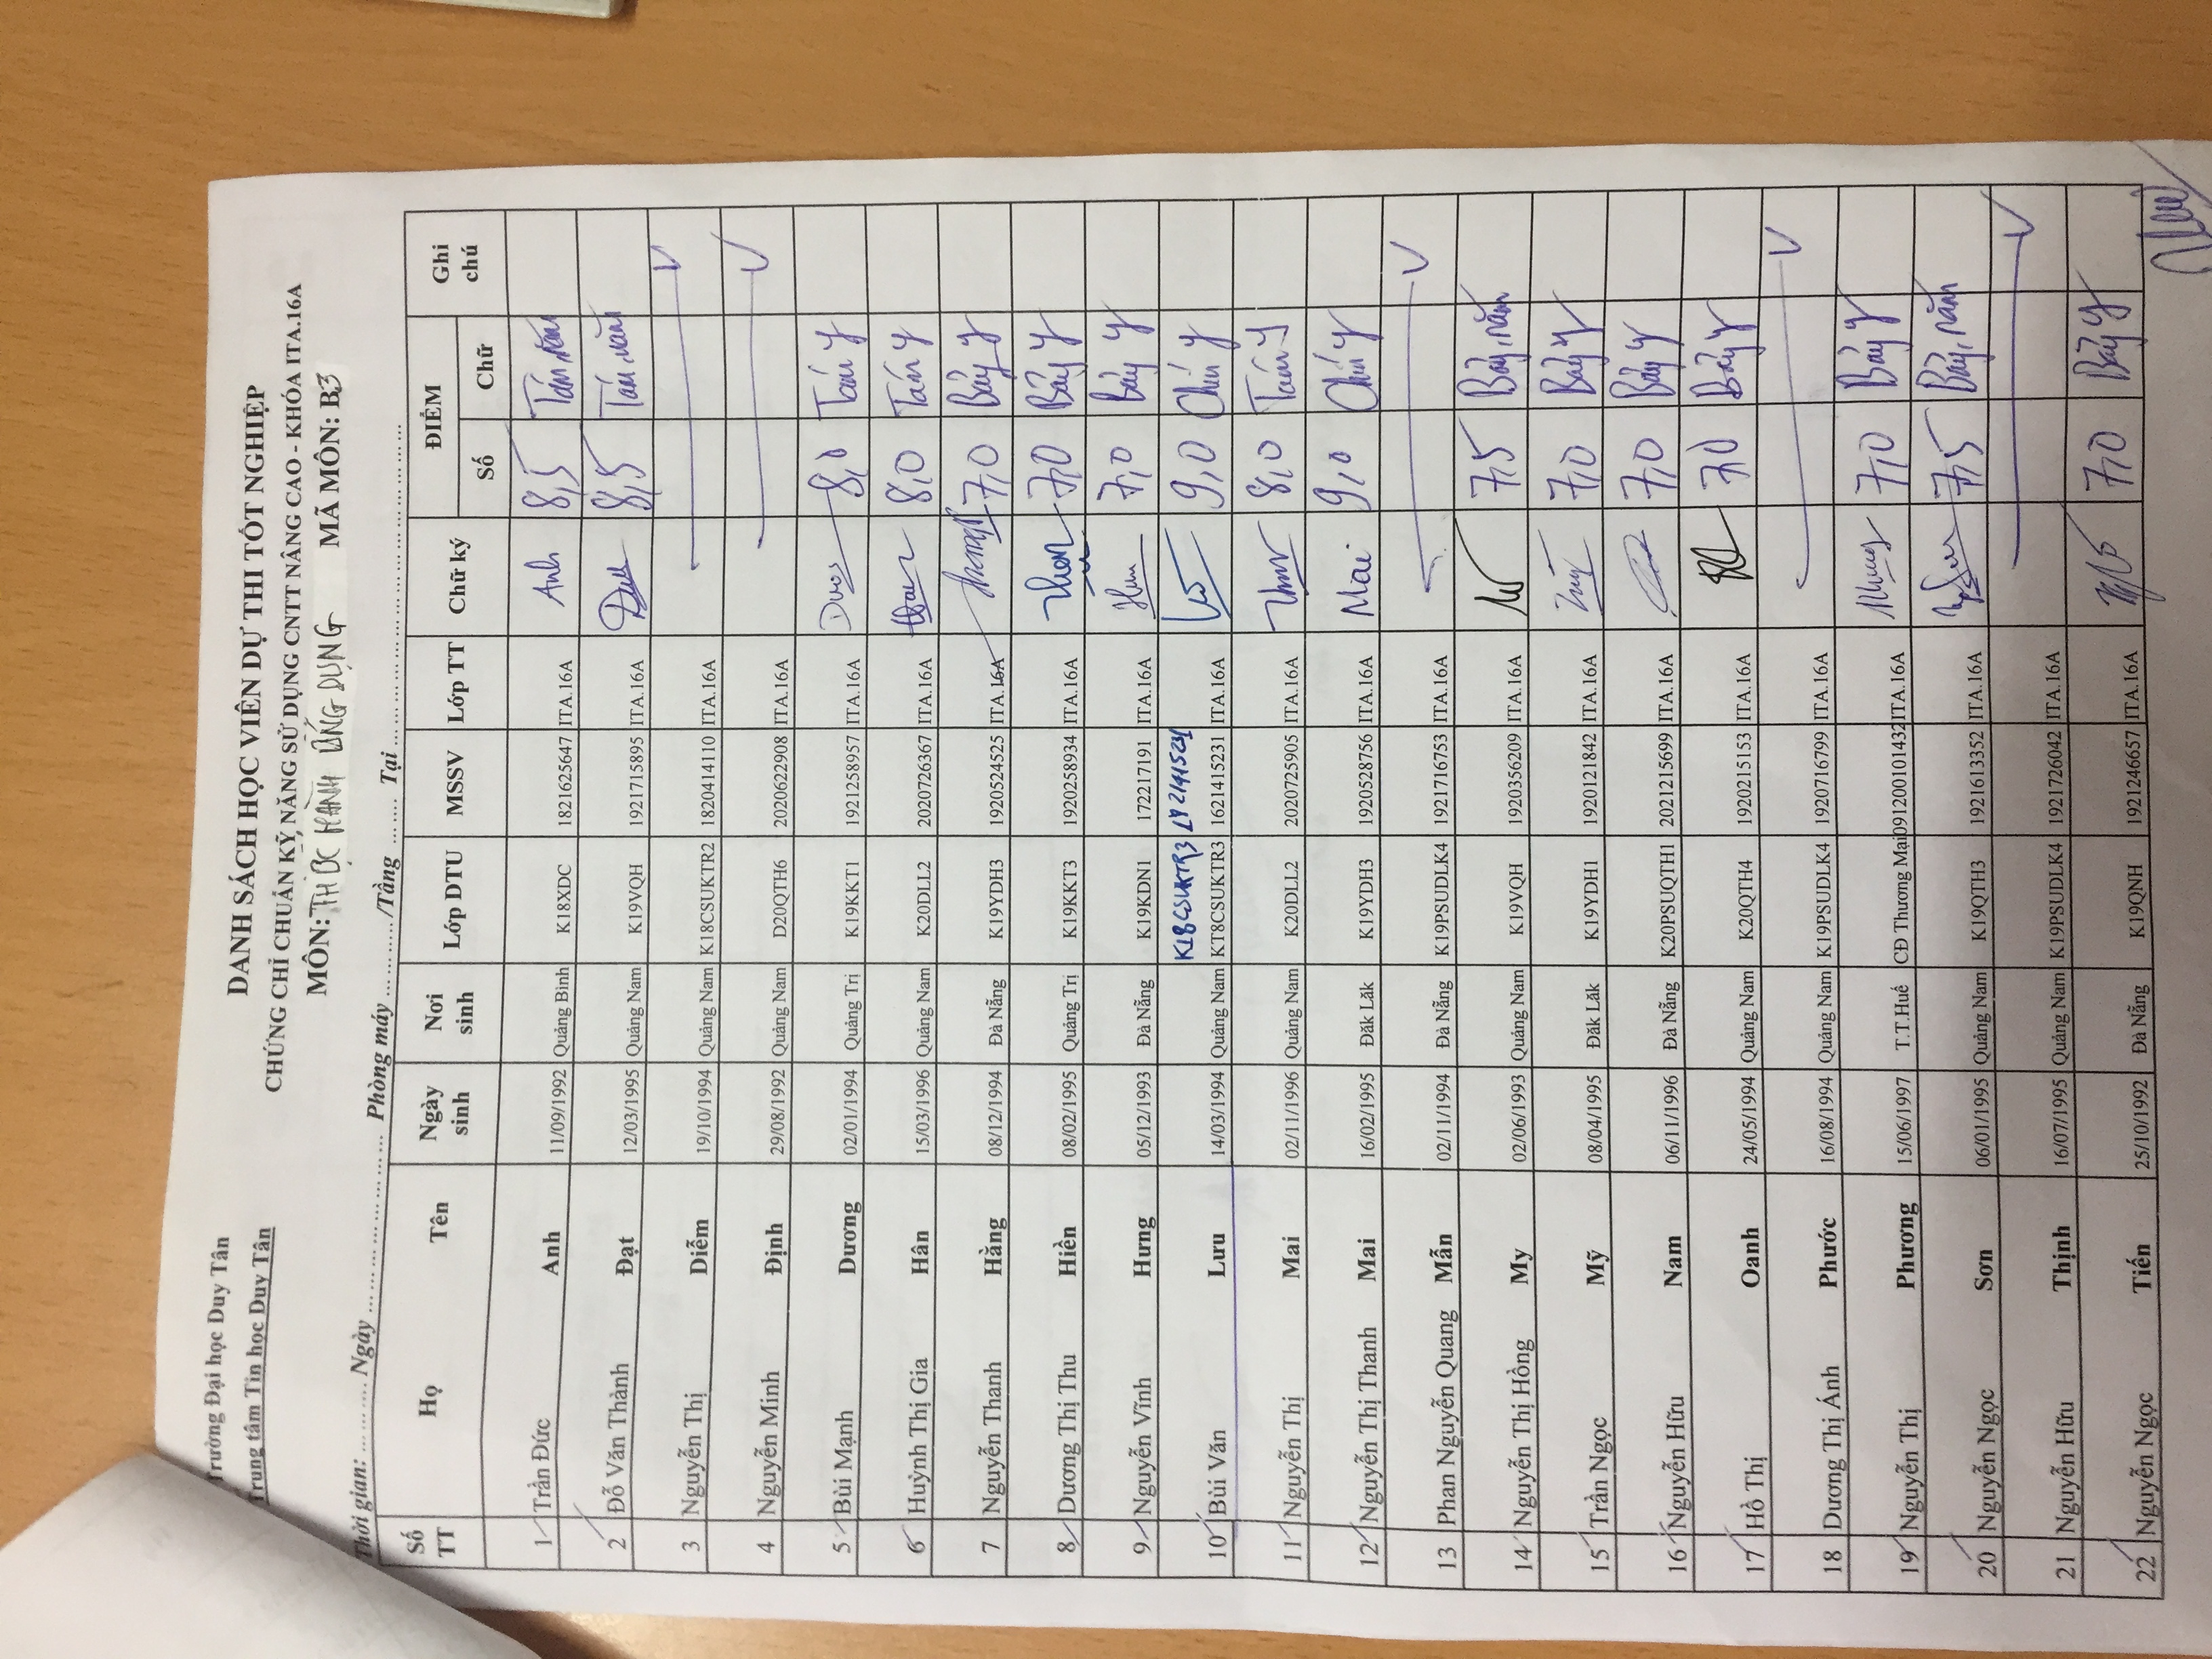 Trường Đại học Duy Tân
Trung tâm Tin học Duy Tân
DANH SÁCH HỌC VIÊN DỰ THI TỐT NGHIỆP
CHỨNG CHỈ CHUẨN KỸ NĂNG SỬ DỤNG CNTT NÂNG CAO - KHÓA ITA.16A
MÔN: THỰC HÀNH ỨNG DỤNG MÃ MÔN: B3
Thời gian: ............ Ngày ........................ Phòng máy ............ /Tầng ............ Tại ....................................
Số TT Họ Tên Ngày sinh Nơi sinh Lớp DTU MSSV Lớp TT Chữ ký ĐIỂM Ghi chú
Số Chữ
1 Trần Đức Anh 11/09/1992 Quảng Bình K18XDC 1821625647 ITA.16A Anh 8,5 Tám, năm
2 Đỗ Văn Thành Đạt 12/03/1995 Quảng Nam K19VQH 1921715895 ITA.16A 8,5 Tám, năm
3 Nguyễn Thị Diễm 19/10/1994 Quảng Nam K18CSUKTR2 1820414110 ITA.16A V
4 Nguyễn Minh Định 29/08/1992 Quảng Nam D20QTH6 2020622908 ITA.16A V
5 Bùi Mạnh Dương 02/01/1994 Quảng Trị K19KKT1 1921258957 ITA.16A 8,0 Tám y
6 Huỳnh Thị Gia Hân 15/03/1996 Quảng Nam K20DLL2 2020726367 ITA.16A 8,0 Tám y
7 Nguyễn Thanh Hằng 08/12/1994 Đà Nẵng K19YDH3 1920524525 ITA.16A 7,0 Bảy y
8 Dương Thị Thu Hiền 08/02/1995 Quảng Trị K19KKT3 1920258934 ITA.16A 7,0 Bảy y
9 Nguyễn Vĩnh Hưng 05/12/1993 Đà Nẵng K19KDN1 172217191 ITA.16A 7,0 Bảy y
K18CSUKTR3
10 Bùi Văn Lưu 14/03/1994 Quảng Nam KT8CSUKTR3 1621415231 ITA.16A 9,0 Chín y
11 Nguyễn Thị Mai 02/11/1996 Quảng Nam K20DLL2 2020725905 ITA.16A 8,0 Tám y
12 Nguyễn Thị Thanh Mai 16/02/1995 Đăk Lăk K19YDH3 1920528756 ITA.16A Mai 9,0 Chín y
13 Phan Nguyễn Quang Mẫn 02/11/1994 Đà Nẵng K19PSUDLK4 1921716753 ITA.16A V
14 Nguyễn Thị Hồng My 02/06/1993 Quảng Nam K19VQH 1920356209 ITA.16A 7,5 Bảy, năm
15 Trần Ngọc Mỹ 08/04/1995 Đăk Lăk K19YDH1 1920121842 ITA.16A 7,0 Bảy y
16 Nguyễn Hữu Nam 06/11/1996 Đà Nẵng K20PSUQTH1 2021215699 ITA.16A 7,0 Bảy y
17 Hồ Thị Oanh 24/05/1994 Quảng Nam K20QTH4 1920215153 ITA.16A 7,0 Bảy y
18 Dương Thị Ánh Phước 16/08/1994 Quảng Nam K19PSUDLK4 1920716799 ITA.16A V
19 Nguyễn Thị Phương 15/06/1997 T.T.Huế CĐ Thương Mại 091200101432 ITA.16A 7,0 Bảy y
20 Nguyễn Ngọc Sơn 06/01/1995 Quảng Nam K19QTH3 1921613352 ITA.16A 7,5 Bảy, năm
21 Nguyễn Hữu Thịnh 16/07/1995 Quảng Nam K19PSUDLK4 1921726042 ITA.16A V
22 Nguyễn Ngọc Tiến 25/10/1992 Đà Nẵng K19QNH 1921246657 ITA.16A 7,0 Bảy y